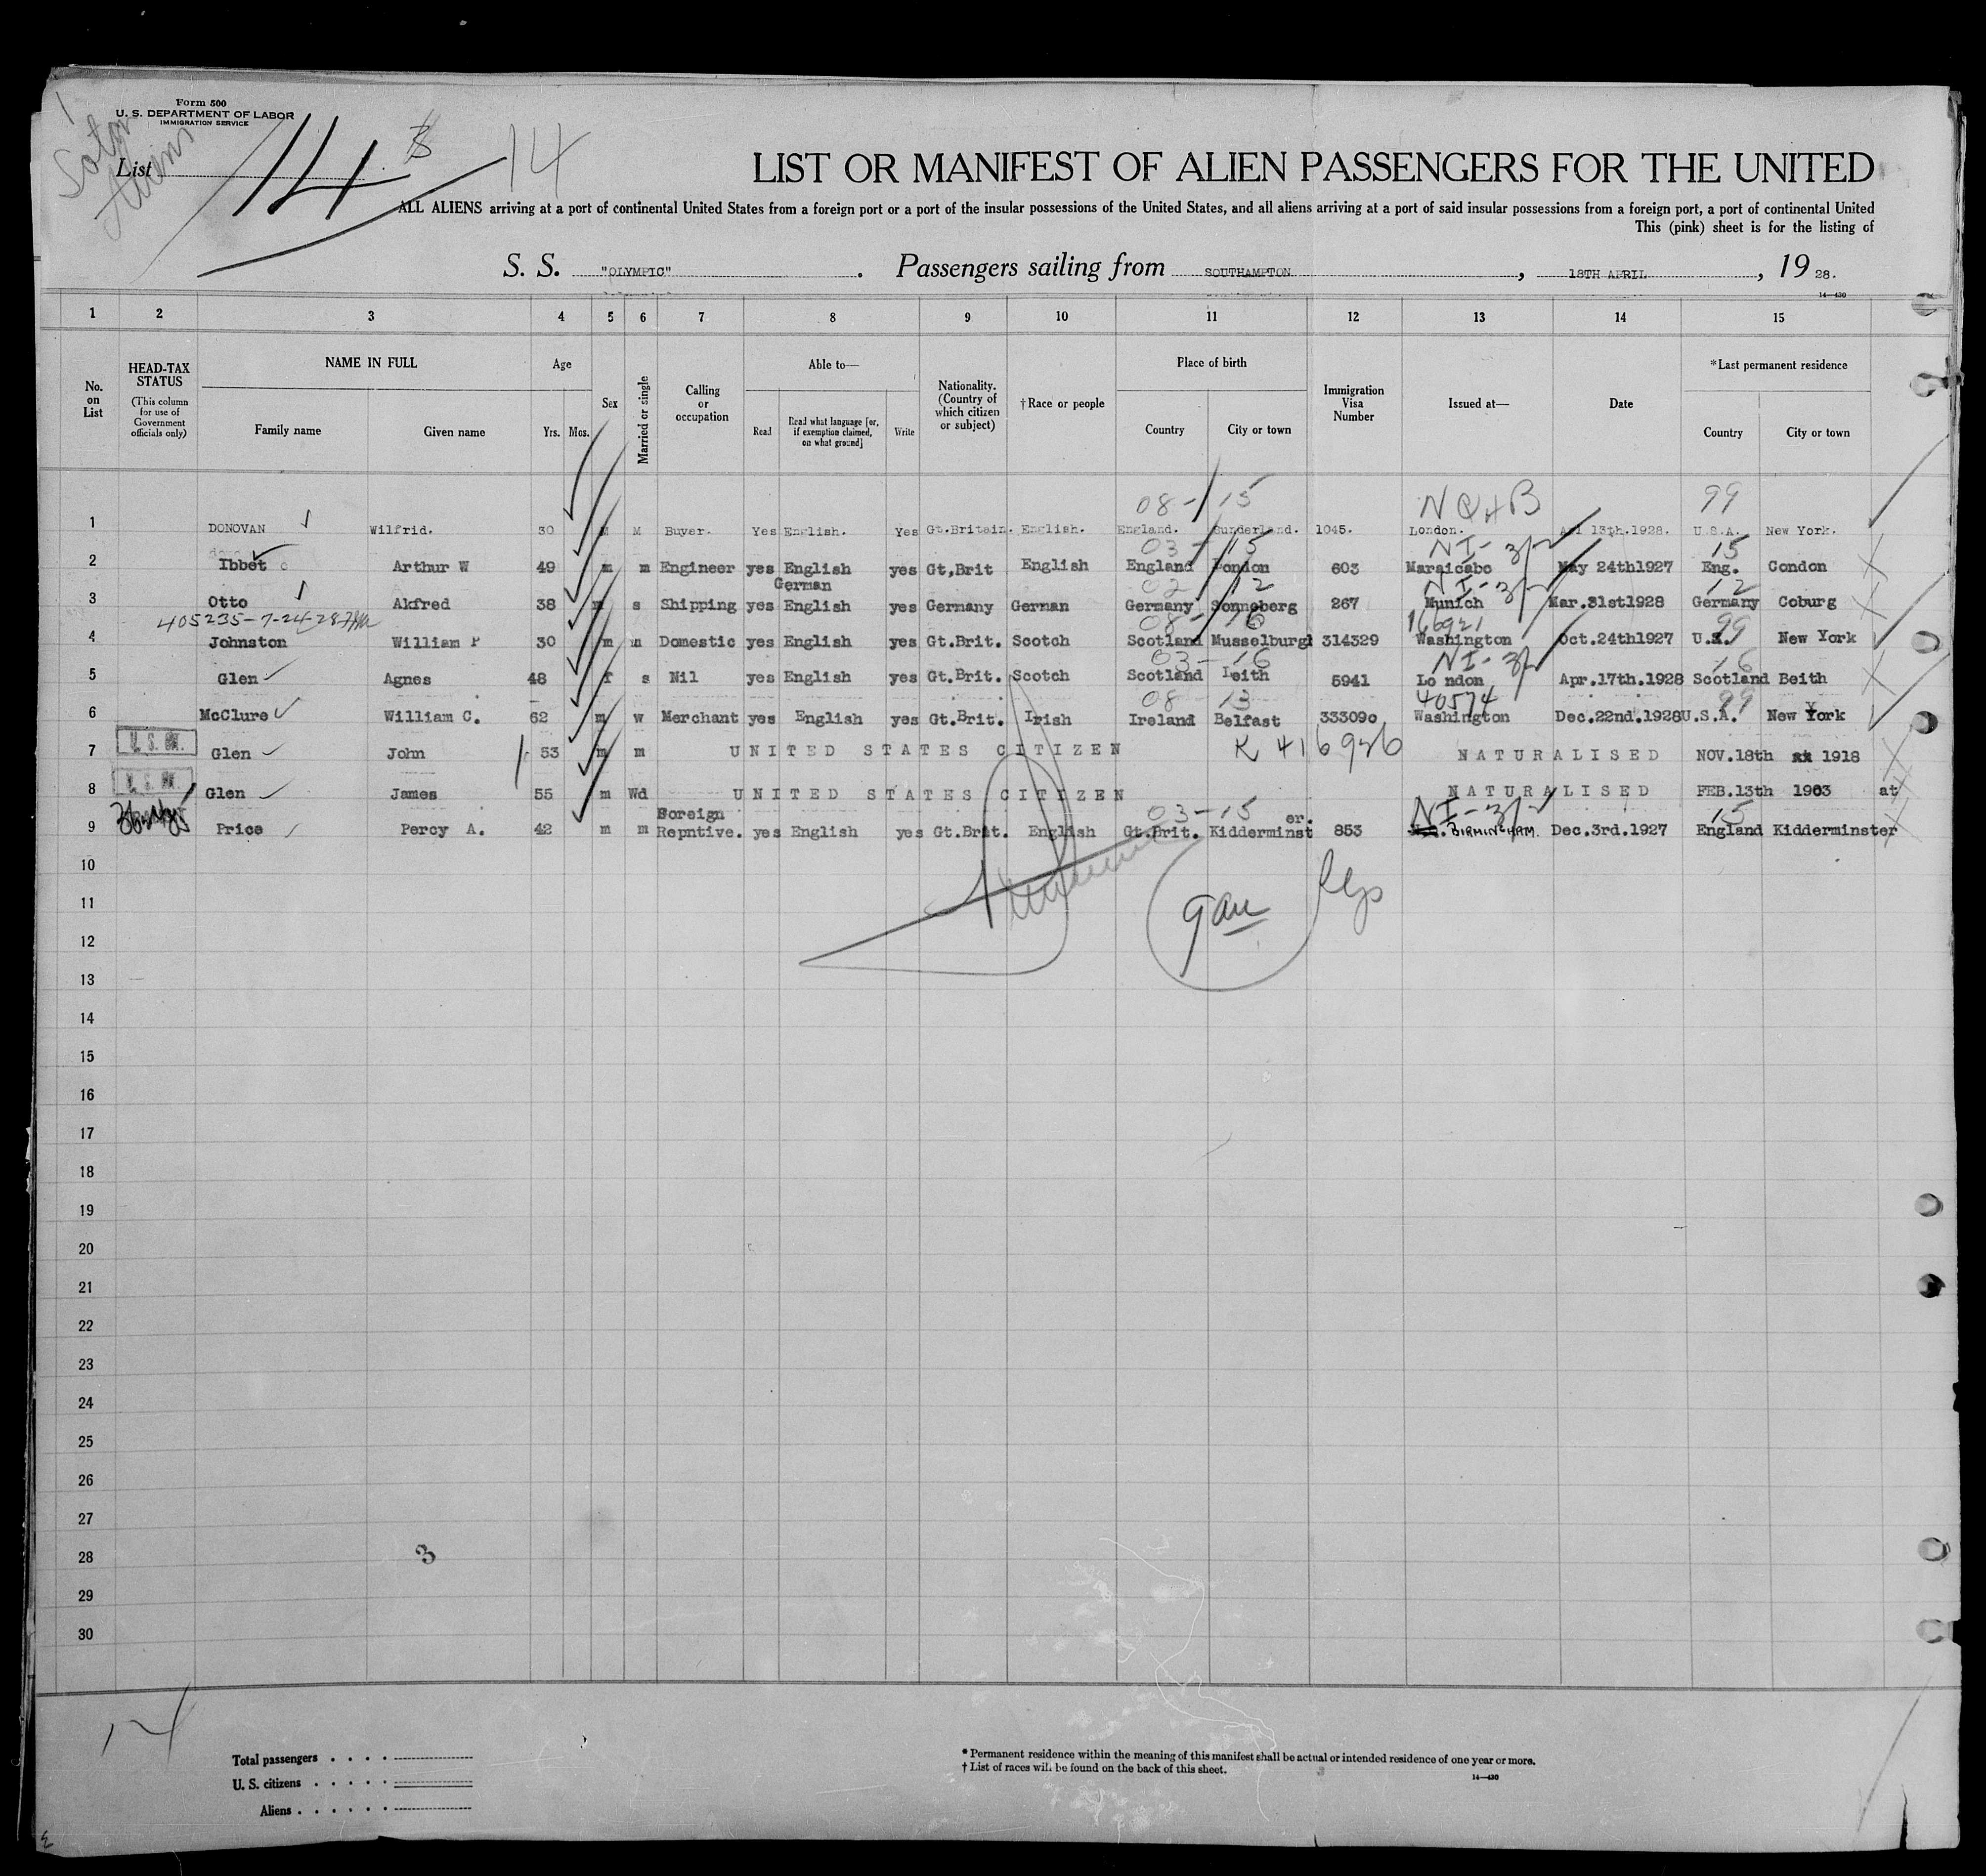 Form 500
U. S. DEPARTMENT OF LABOR
IMMIGRATION SERVICE
List 14 14
LIST OR MANIFEST OF ALIEN PASSENGERS FOR THE UNITED
ALL ALIENS arriving at a port of continental United States from a foreign port or a port of the insular possessions of the United States, and all aliens arriving at a port of said insular possessions from a foreign port, a port of continental United
This (pink) sheet is for the listing of
S. S. "OLYMPIC" . Passengers sailing from SOUTHAMPTON , 18TH APRIL , 19 28.
14—430
1 2 3 4 5 6 7 8 9 10 11 12 13 14 15
No. on List
HEAD-TAX STATUS
(This column for use of Government officials only)
NAME IN FULL
Family name Given name
Age
Yrs. Mos.
Sex
Married or single
Calling or occupation
Able to—
Read
Read what language [or, if exemption claimed, on what ground]
Write
Nationality. (Country of which citizen or subject)
†Race or people
Place of birth
Country City or town
Immigration Visa Number
Issued at—
Date
*Last permanent residence
Country City or town
08- 15 NQ4B 99
1 DONOVAN Wilfrid. 30 M M Buyer. Yes English. Yes Gt.Britain. English. England. Sunderland. 1045. London. 13th.1928. U.S.A. New York.
03- 15 NI-3/2 15
2 Ibbet Arthur W 49 m m Engineer yes English yes Gt,Brit English England London 603 Maraicabo May 24th1927 Eng. Condon
German 02 12 NI-3/2 12
3 Otto Alfred 38 m s Shipping yes English yes Germany German Germany Sonneberg 267 Munich Mar.31st1928 Germany Coburg
405235-7-24-28 08- 16 166921 99
4 Johnston William P 30 m m Domestic yes English yes Gt.Brit. Scotch Scotland Musselburgh 314329 Washington Oct.24th1927 U.S. New York
03- 16 NI-3/2 16
5 Glen Agnes 48 f s Nil yes English yes Gt.Brit. Scotch Scotland Leith 5941 Lo ndon Apr.17th.1928 Scotland Beith
08 13 40574 99
6 McClure William C. 62 m w Merchant yes English yes Gt.Brit. Irish Ireland Belfast 333090 Washington Dec.22nd.1928 U.S.A. New York
7 U. S. Glen John 53 m m UNITED STATES CITIZEN K 416926 NATURALISED NOV.18th 1918
8 Glen James 55 m Wd UNITED STATES CITIZEN NATURALISED FEB.13th 1903 at
Foreign 03-15 er. NI-3/2 15
9 Price Percy A. 42 m m Repntive. yes English yes Gt.Brit. English Gt.Brit. Kidderminst 853 BIRMINGHAM. Dec.3rd.1927 England Kidderminster
10
11
12
13
14
15
16
17
18
19
20
21
22
23
24
25
26
27
28 3
29
30
14
Total passengers
U. S. citizens
Aliens
* Permanent residence within the meaning of this manifest shall be actual or intended residence of one year or more.
† List of races will be found on the back of this sheet.
14—430